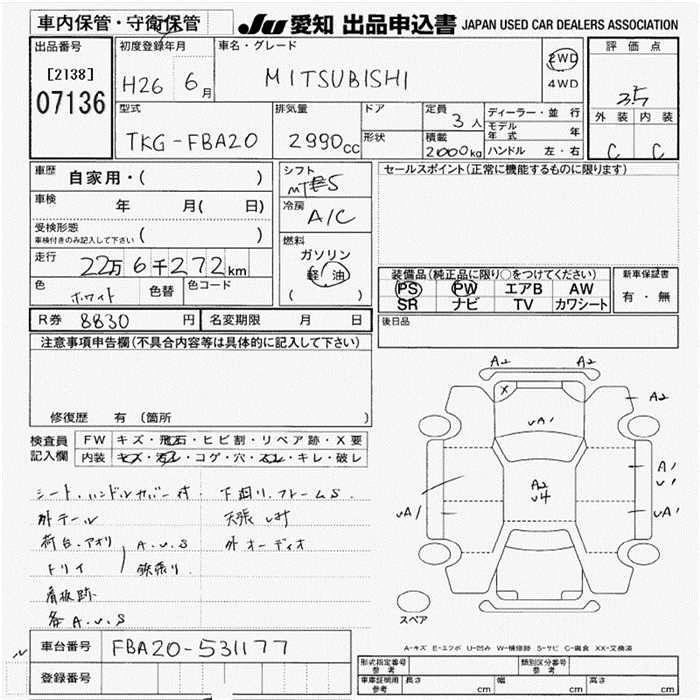 車内保管・守衛保管
JU 愛知 出品申込書 JAPAN USED CAR DEALERS ASSOCIATION
出品番号
[2138]
07136
初度登録年月
H26 6月
車名・グレード
MITSUBISHI
2WD
4WD
評価点
3.5
外装 内装
C C
型式
TKG-FBA20
排気量
2990cc
ドア
形状
定員
3人
積載
2000kg
ディーラー・並行
モデル年式 年
ハンドル 左・右
車歴
自家用・( )
車検
年 月( 日)
受検形態
車検付きのみ記入して下さい ( )
走行
22万6千272km
色
ホワイト
色替
色コード
シフト
5
冷房
A/C
燃料
ガソリン
軽油
( )
セールスポイント(正常に機能するものに限ります)
装備品(純正品に限り○をつけてください)
PS PW エアB AW
SR ナビ TV カワシート
新車保証書
有・無
R券 8830円
名変期限 月 日
後日品
注意事項申告欄(不具合内容等は具体的に記入して下さい)
修復歴 有(箇所 )
検査員記入欄
FW キズ・飛石・ヒビ割・リペア跡・X要
内装 キズ・汚れ・コゲ・穴・スレ・キレ・破レ
シート、ハンドルカバー付・下回り、フレームS
外テール
荷台、アオリ A.U.S 外オーディオ
トリイ 鉄張り
看板跡
各A.U.S
A2 A2
X
A2
UA1
A2
U4
A1
U1
UA1
UA1
スペア
A-キズ E-エクボ U-凹み W-補修跡 S-サビ C-腐食 XX-交換済
車台番号 FBA20-531177
登録番号
形式指定番号 参考
類別区分番号 参考
車庫証明用 参考
長さ cm 幅 cm 高さ cm